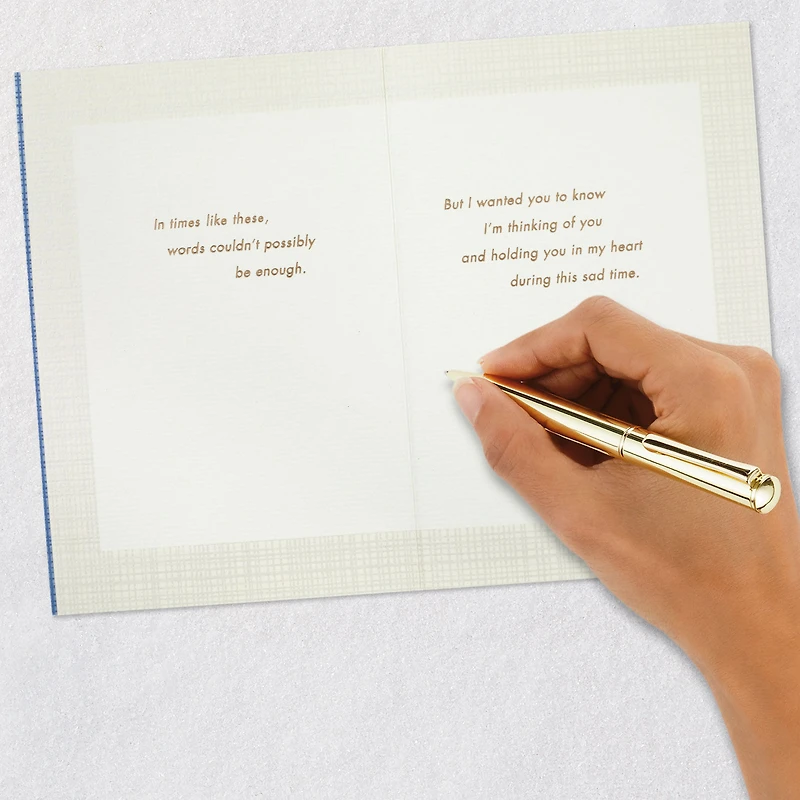 In times like these,
words couldn't possibly
be enough.
But I wanted you to know
I'm thinking of you
and holding you in my heart
during this sad time.